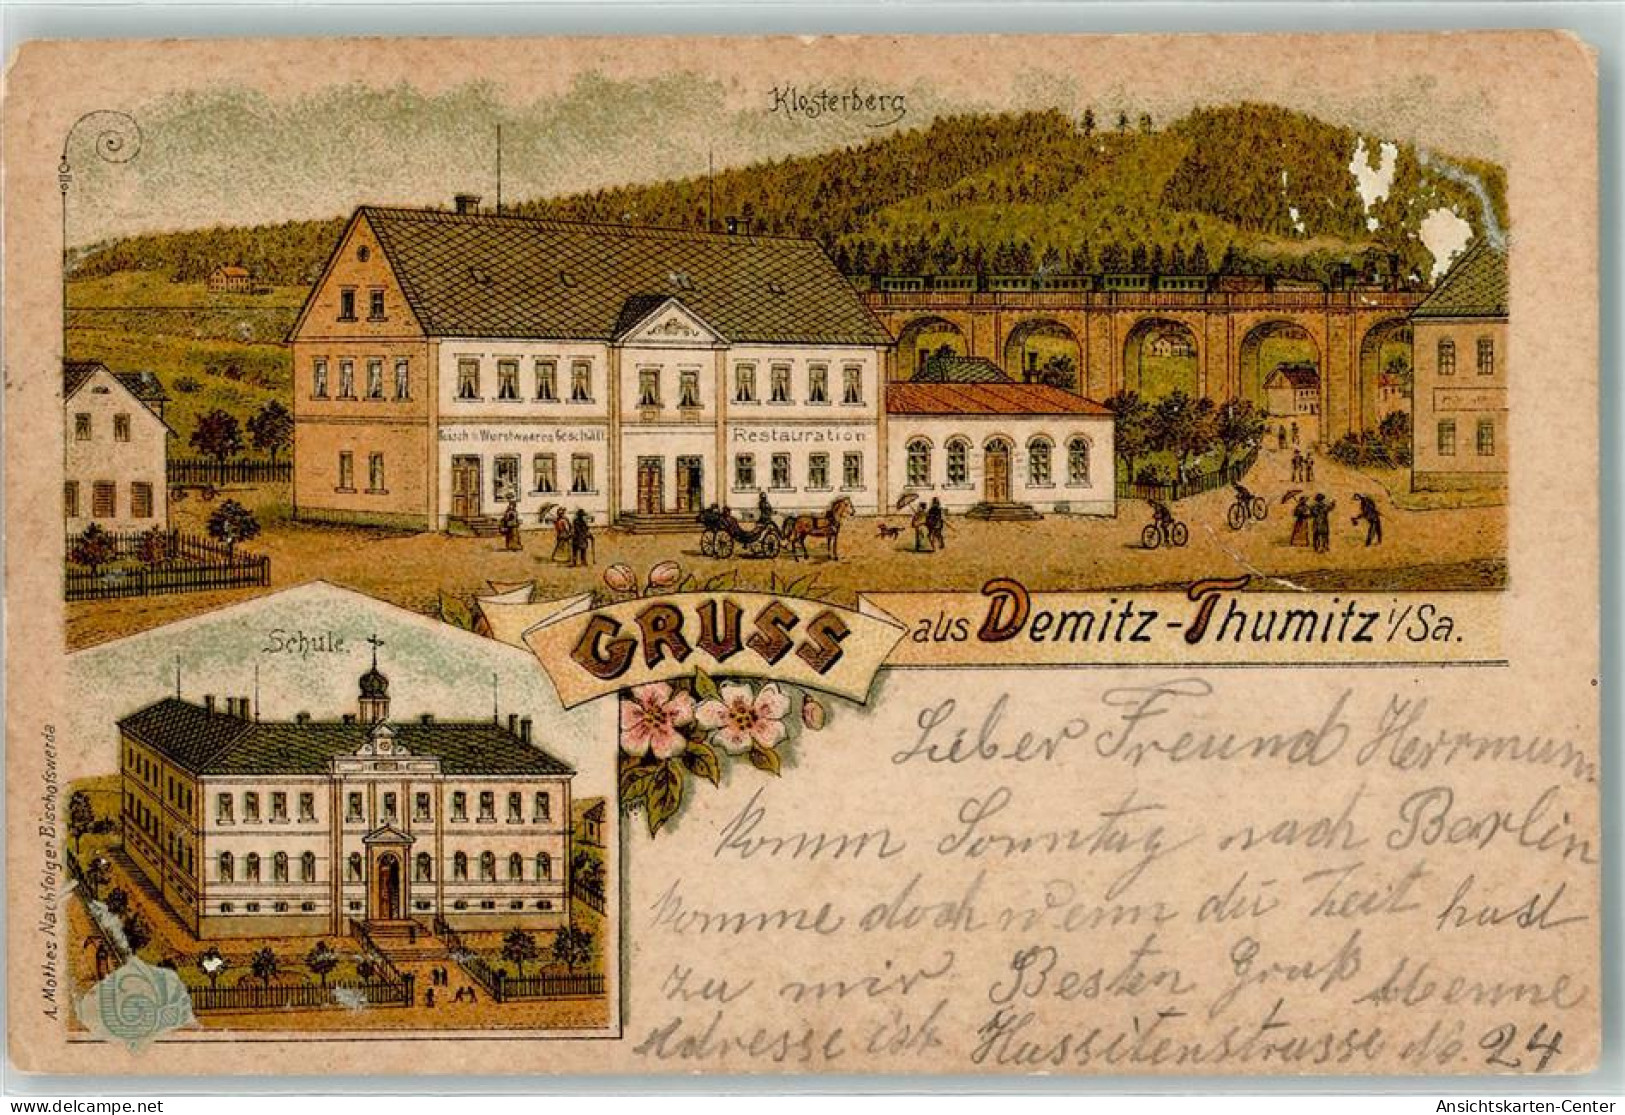 Klosterberg
Wurstwaaren Geschäft
Restauration
GRUSS aus Demitz-Thumitz i/Sa.
Schule.
A. Mothes Nachfolger Bischofswerda
Lieber Freund Herrmann
komm Sonntag nach Berlin
komme doch wenn du Zeit hast
zu mir Besten Gruß Menne
Adresse ist Hussitenstrasse No. 24
delcampe.net
Ansichtskarten-Center